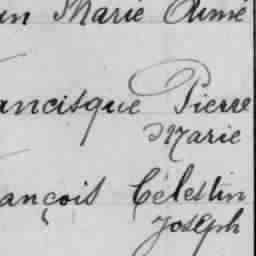 un Marie Aimé
ancisque Pierre
Marie
ançois Célestin
Joseph